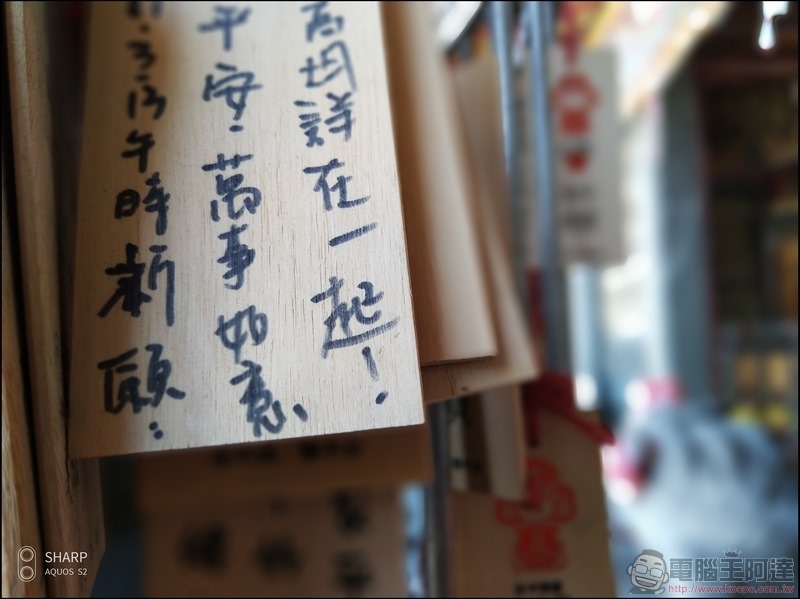 11.3.13午時祈願:
平安、萬事如意、
均詳在一起!
SHARP
AQUOS S2
電腦王阿達
http://www.kocpc.com.tw